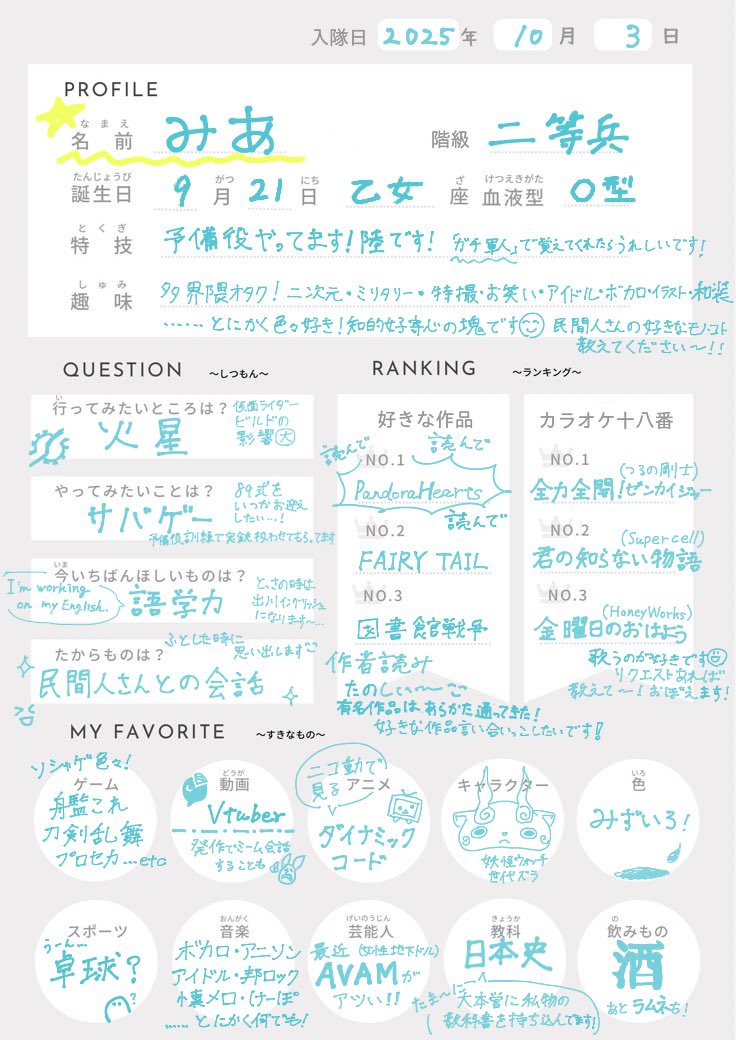 入隊日 2025年 10月 3日
PROFILE
なまえ
名前 みあ 階級 二等兵
たんじょうび がつ にち ざ けつえきがた
誕生日 9月21日 乙女座 血液型 O型
とくぎ
特技 予備役やってます!陸です!「ガチ軍人」で覚えてくれたらうれしいです!
しゅみ
趣味 多界隈オタク!二次元・ミリタリー・特撮・お笑い・アイドル・ボカロ・イラスト・和装
……とにかく色々好き!知的好奇心の塊です 民間人さんの好きなモノ・コト
教えてください〜!!
QUESTION 〜しつもん〜
い
行ってみたいところは?
火星
仮面ライダー
ビルドの
影響大
やってみたいことは?
サバゲー
89式を
いつかお迎え
したい…!
予備役訓練で実銃扱わせてもらってます
いま
今いちばんほしいものは?
I'm working
on my English..
語学力
とっさの時は
出川イングリッシュ
になります〜…
たからものは?
ふとした時に
思い出します
民間人さんとの会話
RANKING 〜ランキング〜
好きな作品
読んで
読んで
NO.1
PandoraHearts
読んで
NO.2
FAIRY TAIL
NO.3
図書館戦争
作者読み
たのしい〜
有名作品はあらかた通ってきた!
好きな作品言い合いっこしたいです!!
カラオケ十八番
NO.1
(つるの剛士)
全力全開!ゼンカイジャー
NO.2
(Supercell)
君の知らない物語
NO.3
(HoneyWorks)
金曜日のおはよう
歌うのが好きです
リクエストあれば
教えて〜!おぼえます!
MY FAVORITE 〜すきなもの〜
ソシャゲ色々!
ゲーム
艦これ
刀剣乱舞
プロセカ…etc
どうが
動画
Vtuber
発作でミーム会話
することも
ニコ動で
見る
アニメ
ダイナミック
コード
キャラクター
妖怪ウォッチ
世代ズラ
いろ
色
みずいろ!
スポーツ
うーん…
卓球?
?
おんがく
音楽
ボカロ・アニソン
アイドル・邦ロック
懐メロ・けーぽ
……とにかく何でも!
げいのうじん
芸能人
最近(女性地下ドル)
AVAMが
アツい!!
きょうか
教科
日本史
たま〜に
大本営に私物の
教科書を持ち込んでます!
の
飲みもの
酒
あと ラムネも!